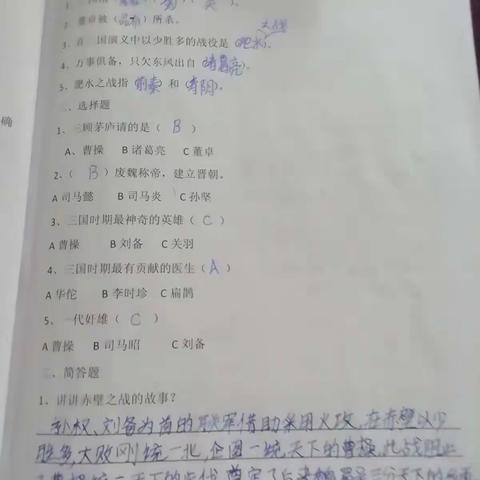 2、董卓被（）所杀。
3、百 国演义中以少胜多的战役是（肥水）。
4、万事俱备，只欠东风出自（诸葛亮）。
5、淝水之战指（前秦）和（）
二、选择题
1、三顾茅庐请的是（ B ）
A、曹操 B 诸葛亮 C 董卓
2、（ B ）废魏称帝，建立晋朝。
A 司马懿 B 司马炎 C 孙坚
3、三国时期最神奇的英雄（ C ）
A 曹操 B 刘备 C 关羽
4、三国时期最有贡献的医生（ A ）
A 华佗 B 李时珍 C 扁鹊
5、一代奸雄（ C ）
A 曹操 B 司马昭 C 刘备
三、简答题
1、讲讲赤壁之战的故事？
孙权、刘备为首的联军借助采用火攻，在赤壁以少
胜多，大败刚统一北，企图一统天下的曹操，此战阻止
确